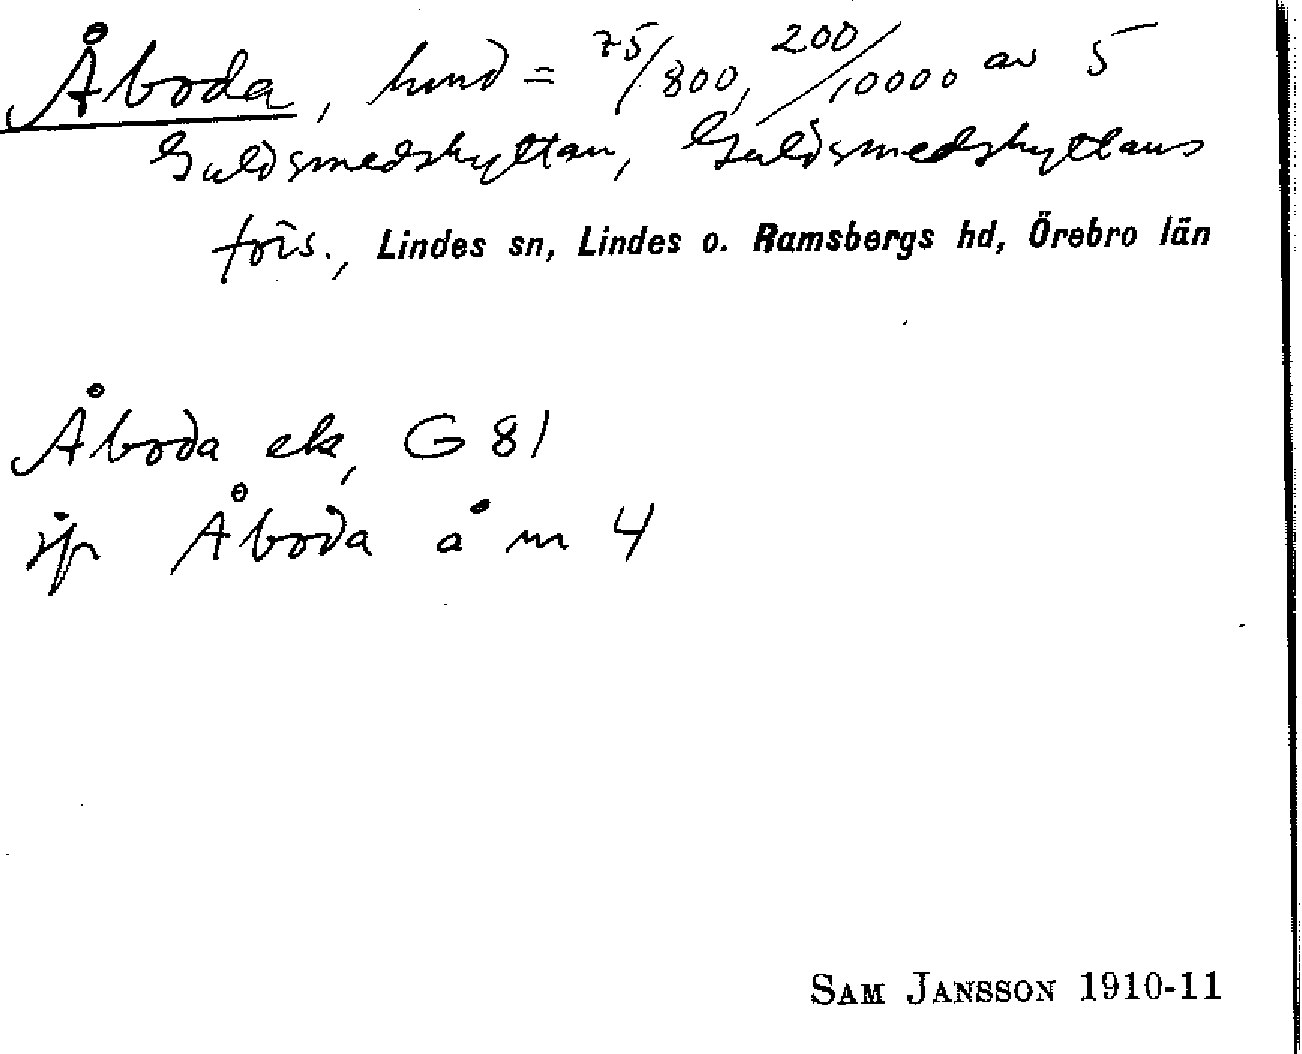 Åboda, hmd = 75/800, 200/10000 av 5
Guldsmedshyttan, Guldsmedshyttans
förs., Lindes sn, Lindes o. Ramsbergs hd, Örebro län
Åboda ek, G 81
jfr Åboda å m 4
SAM JANSSON 1910-11